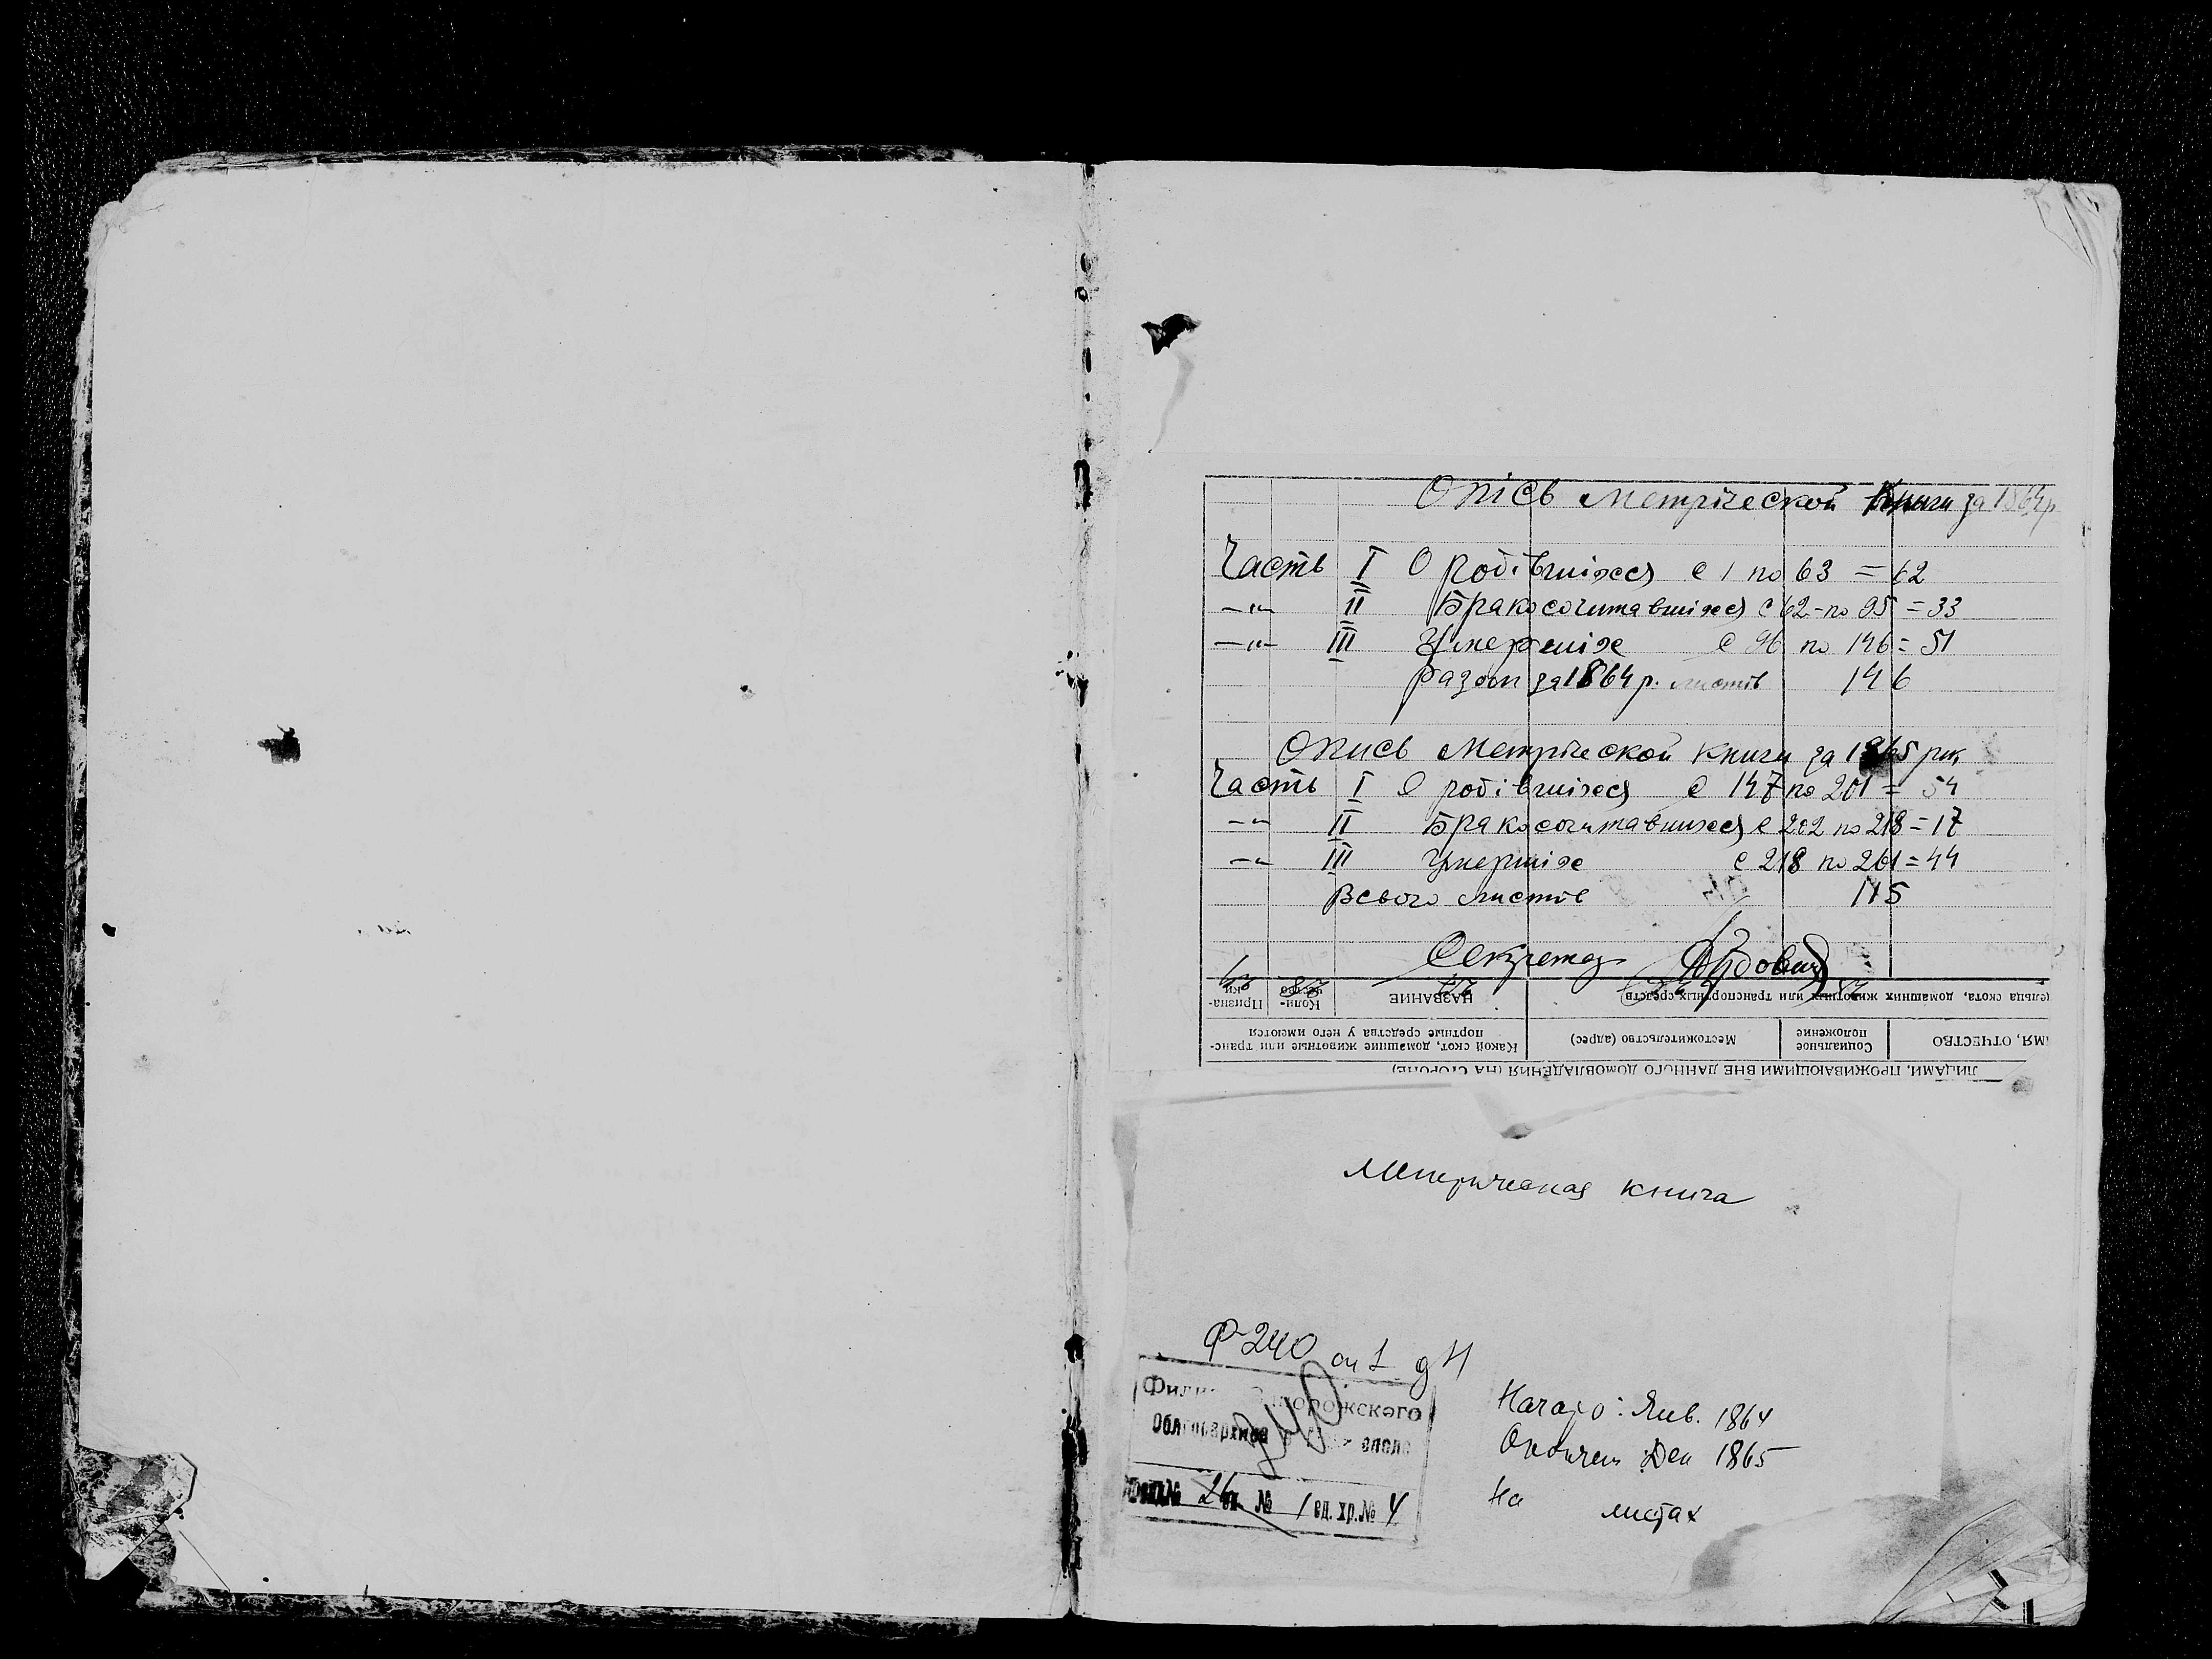 Опісь метріческой Книги за 1864 р
Часть I О родівшіхся с 1 по 63 = 62
—"— II Бракосочитавшіхся с 62 - по 95 = 33
—"— III Умершіх с 96 по 146 = 51
Разом за 1864 р. листів 146
Опись Метріческой книги за 1865 рік
Часть I О родівшіхся с 147 по 201 = 54
—"— II Бракосочитавшихся с 202 по 218 = 17
—"— III Умершіх с 218 по 261 = 44
Всього листів 115
Секретар
Призна-
ки
Коли-
чество
НАЗВАНИЕ
ельца скота, домашних животных или транспортных средств)
Какой скот, домашние животные или транс-
портные средства у него имеются
Местожительство (адрес)
Социальное
положение
ИМЯ, ОТЧЕСТВО
ЛИЦАМИ, ПРОЖИВАЮЩИМИ ВНЕ ДАННОГО ДОМОВЛАДЕНИЯ (НА СТОРОНЕ)
Метрическая книга
Ф 240 оп 1 д 4
240
Облгосархива
№ 26 № 1 ед. хр. № 4
Начало: Янв. 1864
Окончен Дек 1865
На листах